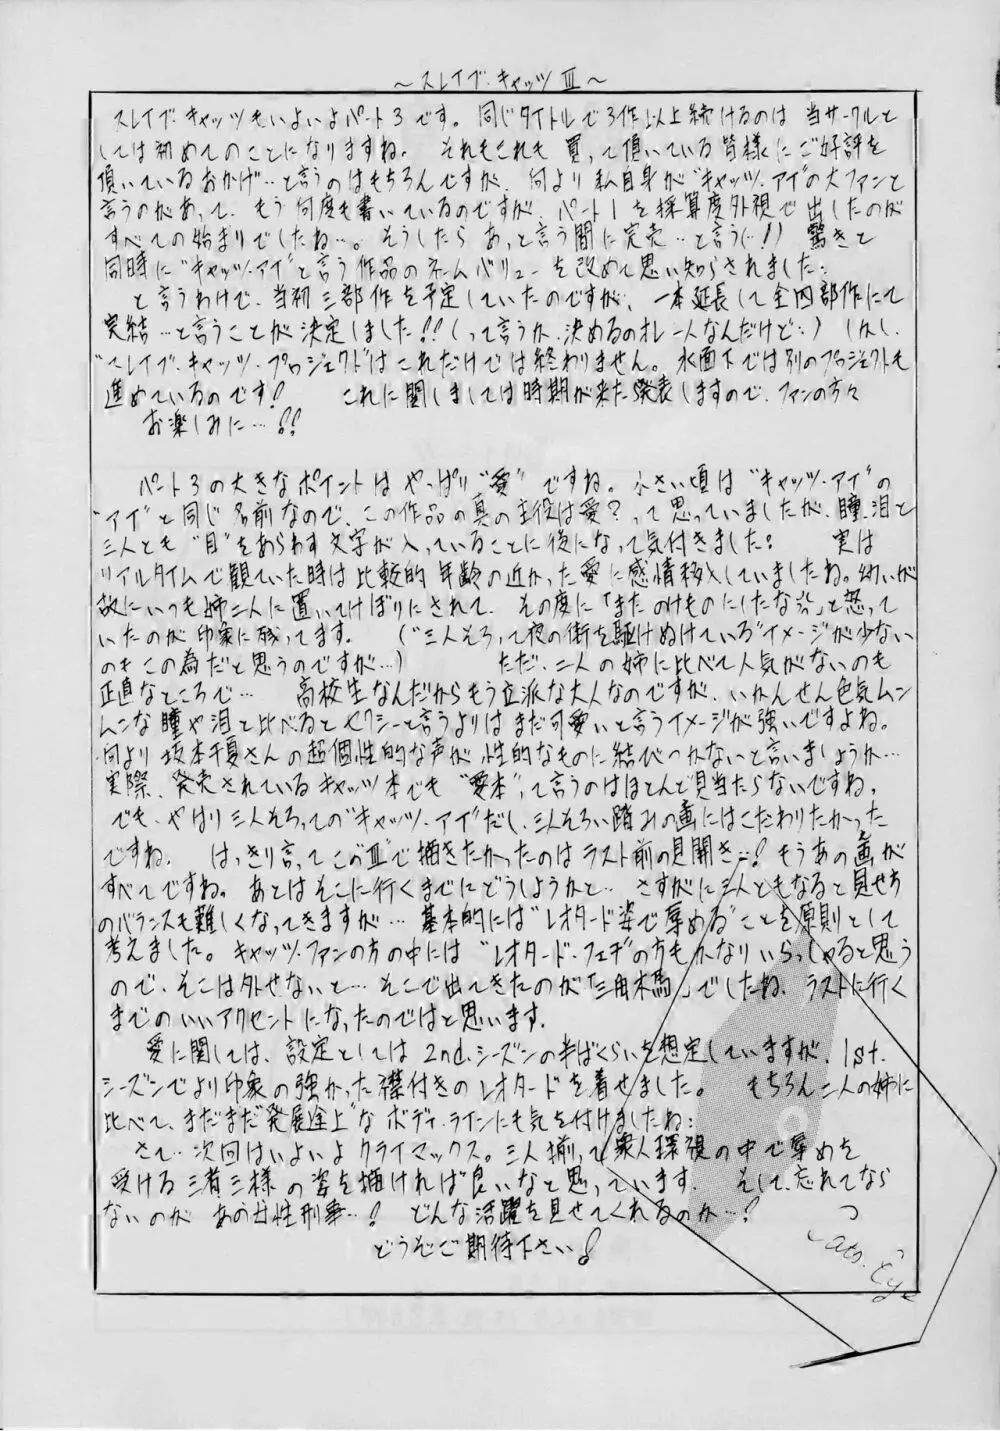 ～スレイブ・キャッツⅢ～
スレイブ・キャッツもいよいよパート3です。同じタイトルで3作以上続けるのは当サークルと
しては初めてのことになりますね。それもこれも買って頂いている皆様にご好評を
頂いているおかげ…と言うのはもちろんですが、何より私自身が"キャッツ・アイ"の大ファンと
言うのがあって、もう何度も書いているのですが、パート1を採算度外視で出したのが
すべての始まりでしたね…。そうしたらあっと言う間に完売…と言う(…!) 驚きと
同時に"キャッツ・アイ"と言う作品のネームバリューを改めて思い知らされました…
と言うわけで、当初三部作を予定していたのですが、一本延長して全四部作にて
完結…と言うことが決定しました!!(って言うか、決めるのオレ一人なんだけど…) しかし、
"スレイブ・キャッツ・プロジェクト"はこれだけでは終わりません。水面下では別のプロジェクトも
進めているのです! これに関しましては時期が来た発表しますので、ファンの方々
お楽しみに…!!
パート3の大きなポイントはやっぱり"愛"ですね。小さい頃は"キャッツ・アイ"の
"アイ"と同じ名前なので、この作品の真の主役は愛?って思っていましたが、瞳、泪と
三人とも"目"をあらわす文字が入っていることに後になって気付きました… 実は
リアルタイムで観ていた時は比較的年齢の近かった愛に感情移入していましたね。幼いが
故にいつも姉二人に置いてけぼりにされて、その度に「またのけものにしたな」と怒って
いたのが印象に残ってます。("三人そろって夜の街を駆けぬけている"イメージが少ない
のもこの為だと思うのですが…) ただ、二人の姉に比べて人気がないのも
正直なところで… 高校生なんだからもう立派な大人なのですが、いかんせん色気ムン
ムンな瞳や泪と比べるとセクシーと言うよりはまだ可愛いと言うイメージが強いですよね。
何より坂本千夏さんの超個性的な声が性的なものに結びつかないと言いましょうか…
実際、発売されているキャッツ本でも"愛本"って言うのはほとんど見当たらないですね。
でも、やはり三人そろっての"キャッツ・アイ"だし、三人そろい踏みの画にはこだわりたかった
ですね。はっきり言ってこの"Ⅲ"で描きたかったのはラスト前の見開き…! もうあの画が
すべてですね。あとはそこに行くまでにどうしようかと… さすがに三人ともなると見せ方
のバランスも難しくなってきますが… 基本的には"レオタード姿で辱める"ことを原則として
考えました。キャッツ・ファンの方の中には"レオタード・フェチ"の方もかなりいらっしゃると思う
ので、そこは外せないと… そこで出てきたのが「三角木馬」でしたね、ラストに行く
までのいいアクセントになったのではと思います。
愛に関しては、設定としては2nd.シーズンの半ばくらいを想定していますが、1st.
シーズンでより印象の強かった襟付きのレオタードを着せました。もちろん二人の姉に
比べて、まだまだ"発展途上"なボディ・ラインにも気を付けましたね…
さて…次回はいよいよクライマックス。三人揃って衆人環視の中で辱めを
受ける三者三様の姿を描ければ良いなと思っています。そして、忘れてなら
ないのがあの女性刑事…! どんな活躍を見せてくれるのか…?
どうぞご期待下さい!
Cats.Eye